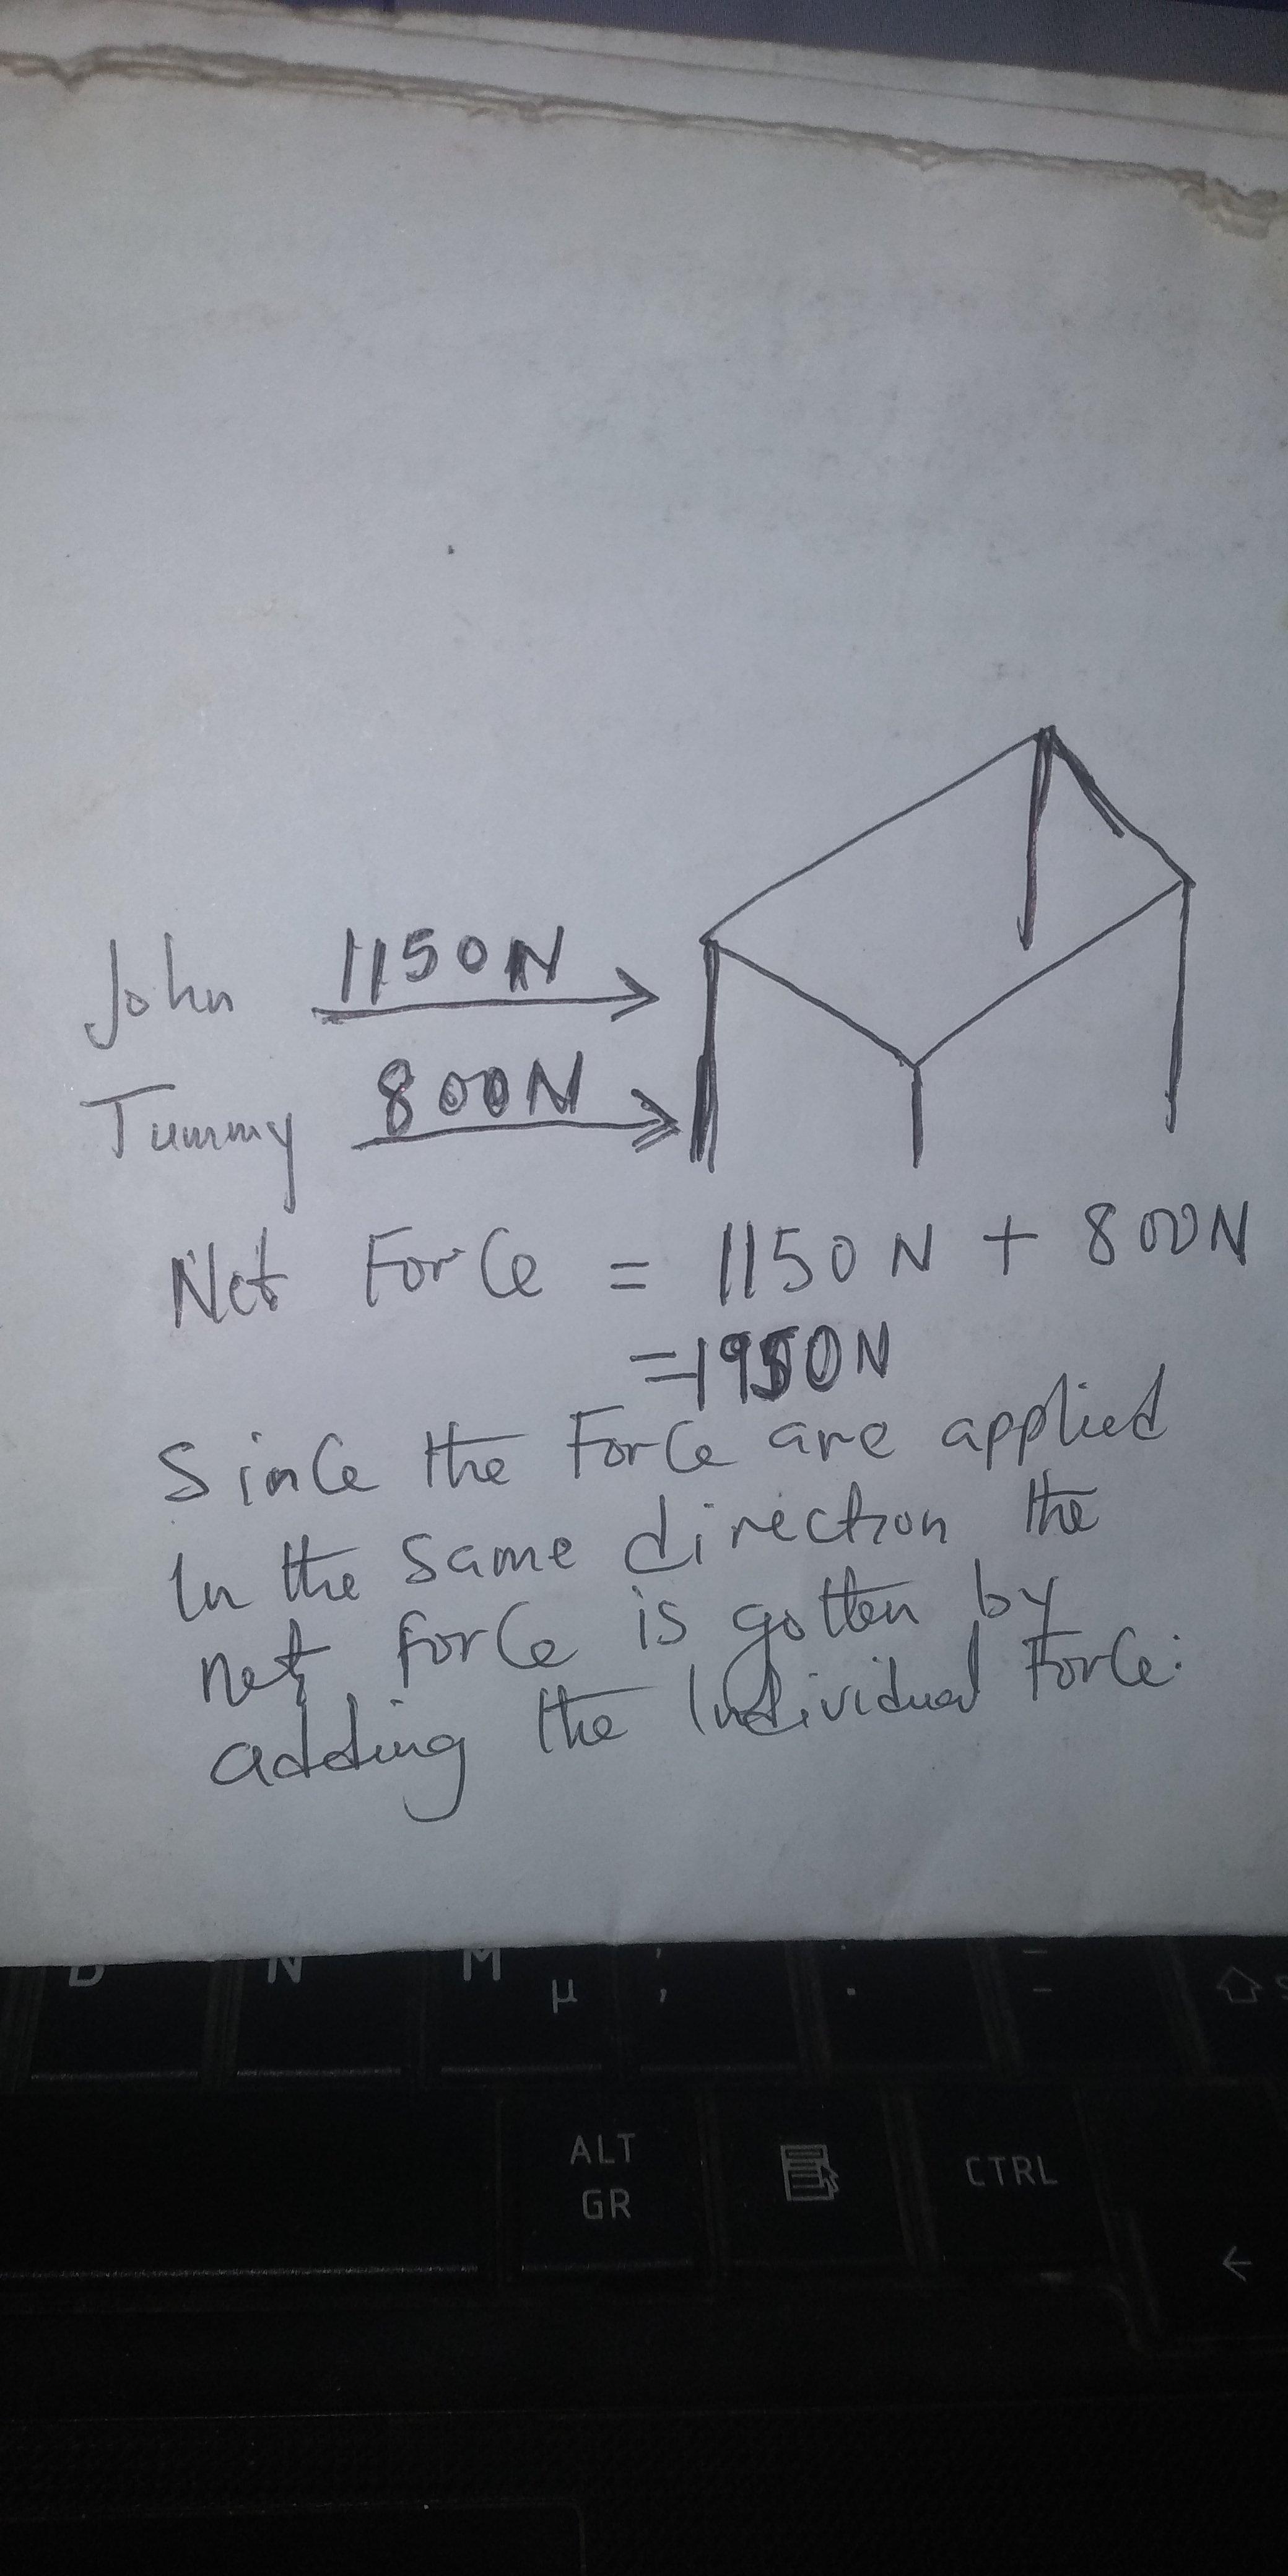 John 1150N
Tummy 800N
Net Force = 1150N + 800N
=1950N
Since the Force are applied
In the same direction the
net force is gotten by
adding the Individual Force.
N
M
µ
ALT
GR
CTRL